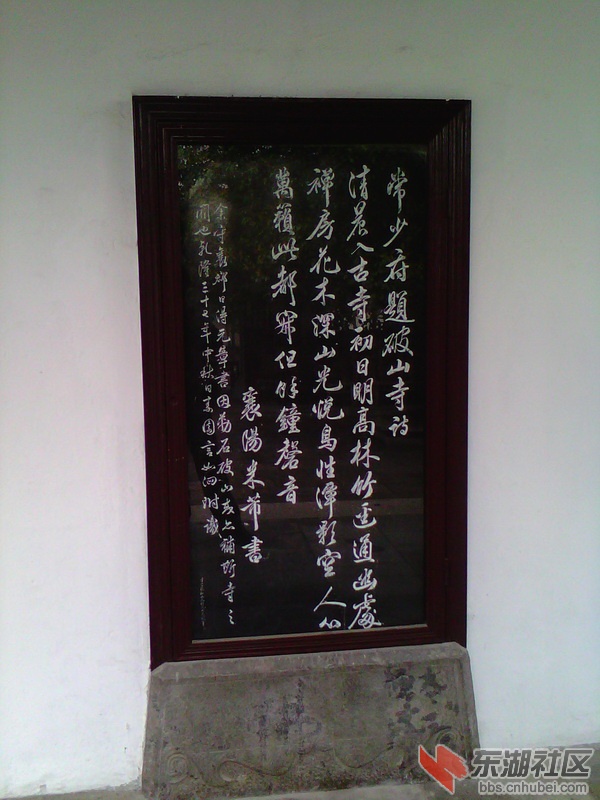 常少府題破山寺詩
清晨入古寺初日明高林竹逕通幽處
禅房花木深山光悦鳥性潭影空人心
萬籟此都寂但餘鐘磬音
襄陽米芾書
余守襄郡日得元章書因勒石破山或亦補斯寺之
闕也乾隆三十七年中秋日素園言如泗附識
东湖社区
bbs.cnhubei.com